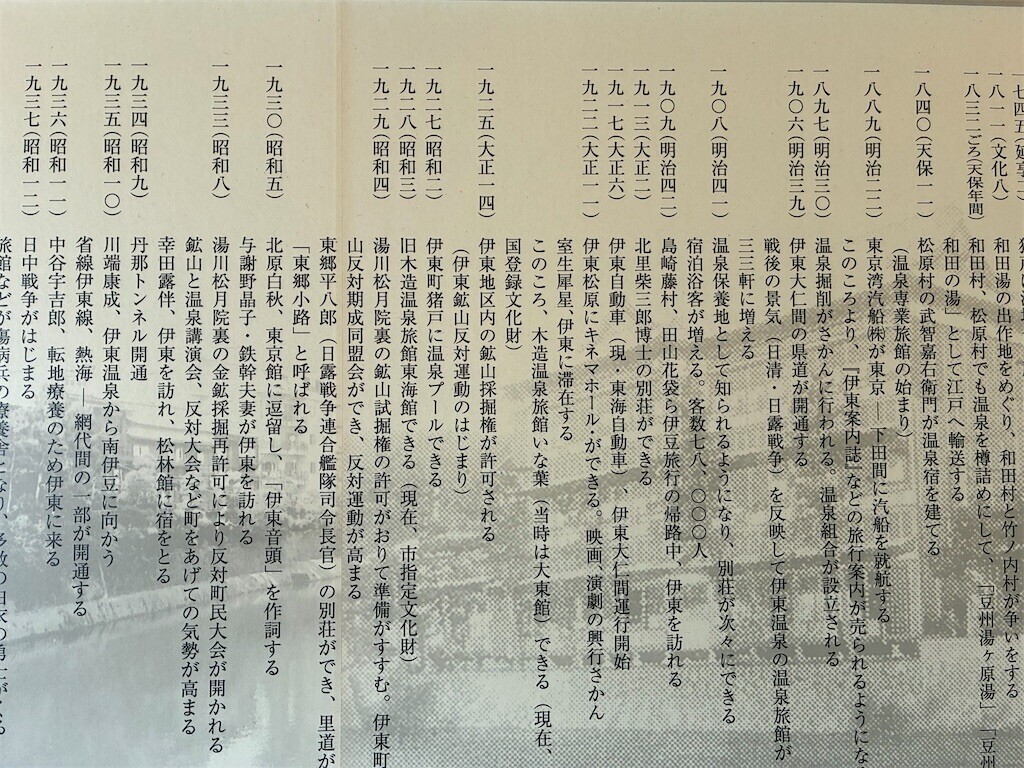 一八一一(文化八)
和田湯の出作地をめぐり、和田村と竹ノ内村が争いをする
一八三二ごろ(天保年間)
和田村、松原村でも温泉を樽詰めにして、『豆州湯ヶ原湯』「豆州
和田の湯』として江戸へ輸送する
一八四〇(天保一一)
松原村の武智嘉右衛門が温泉宿を建てる
(温泉専業旅館の始まり)
一八八九(明治二二)
東京湾汽船㈱が東京―下田間に汽船を就航する
このころより、『伊東案内誌』などの旅行案内が売られるようにな
一八九七(明治三〇)
温泉掘削がさかんに行われる。温泉組合が設立される
一九〇六(明治三九)
伊東大仁間の県道が開通する
戦後の景気(日清・日露戦争)を反映して伊東温泉の温泉旅館が
三三軒に増える
一九〇八(明治四一)
温泉保養地として知られるようになり、別荘が次々にできる
宿泊浴客が増える。客数七八、〇〇〇人
一九〇九(明治四二)
島崎藤村、田山花袋ら伊豆旅行の帰路中、伊東を訪れる
一九一三(大正二)
北里柴三郎博士の別荘ができる
一九一七(大正六)
伊東自動車(現・東海自動車)、伊東大仁間運行開始
一九二二(大正一一)
伊東松原にキネマホールができる。映画、演劇の興行さかん
室生犀星、伊東に滞在する
このころ、木造温泉旅館いな葉(当時は大東館)できる(現在、
国登録文化財)
一九二五(大正一四)
伊東地区内の鉱山採掘権が許可される
(伊東鉱山反対運動のはじまり)
一九二七(昭和二)
伊東町猪戸に温泉プールできる
一九二八(昭和三)
旧木造温泉旅館東海館できる(現在、市指定文化財)
一九二九(昭和四)
湯川松月院裏の鉱山試掘権の許可がおりて準備がすすむ。伊東町
山反対期成同盟会ができ、反対運動が高まる
東郷平八郎(日露戦争連合艦隊司令長官)の別荘ができ、里道が
「東郷小路」と呼ばれる
一九三〇(昭和五)
北原白秋、東京館に逗留し、「伊東音頭」を作詞する
与謝野晶子・鉄幹夫妻が伊東を訪れる
一九三三(昭和八)
湯川松月院裏の金鉱採掘再許可により反対町民大会が開かれる
鉱山と温泉講演会、反対大会など町をあげての気勢が高まる
幸田露伴、伊東を訪れ、松林館に宿をとる
一九三四(昭和九)
丹那トンネル開通
一九三五(昭和一〇)
川端康成、伊東温泉から南伊豆に向かう
省線伊東線、熱海―網代間の一部が開通する
一九三六(昭和一一)
中谷宇吉郎、転地療養のため伊東に来る
一九三七(昭和一二)
日中戦争がはじまる